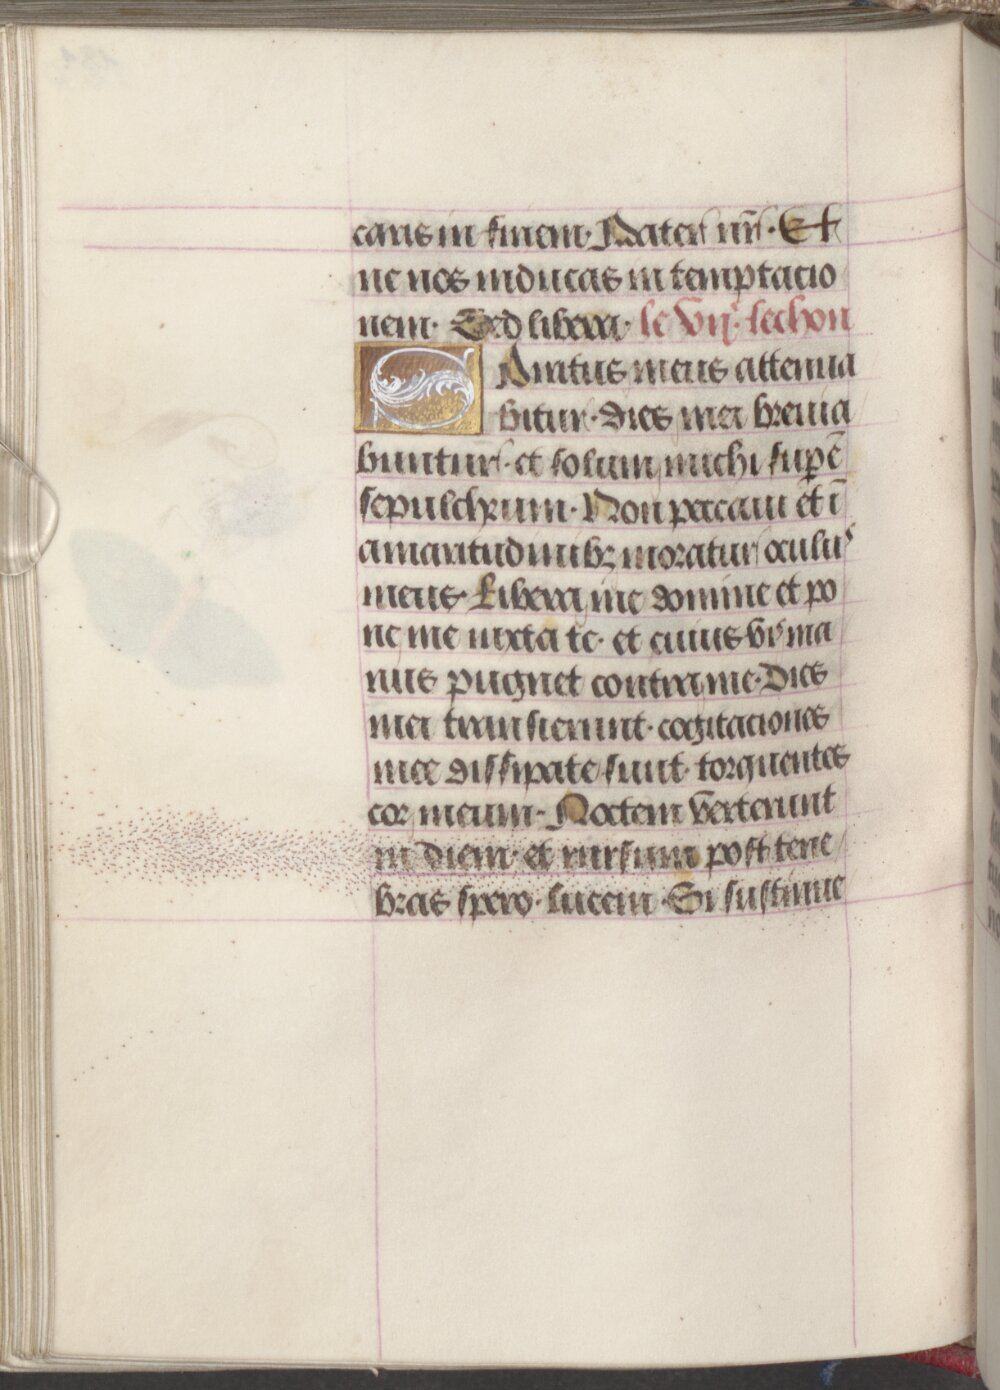 caris in finem. Pater nr̄. Et
ne nos inducas in temptacio
nem. Sed libera. le vij. lechon
Spiritus meus attenua
bitur. dies mei breuia
buntur. et solum michi supē
sepulchrum. Non peccaui et ī
amaritudinibꝫ moratur oculus
meus. Libera me domine et po
ne me iuxta te. et cuius vis ma
nus pugnet contra me. Dies
mei transierunt. cogitaciones
mee dissipate sunt. torquentes
cor meum. Noctem verterunt
in diem. et rursum post tene
bras spero. lucem. Si sustinue